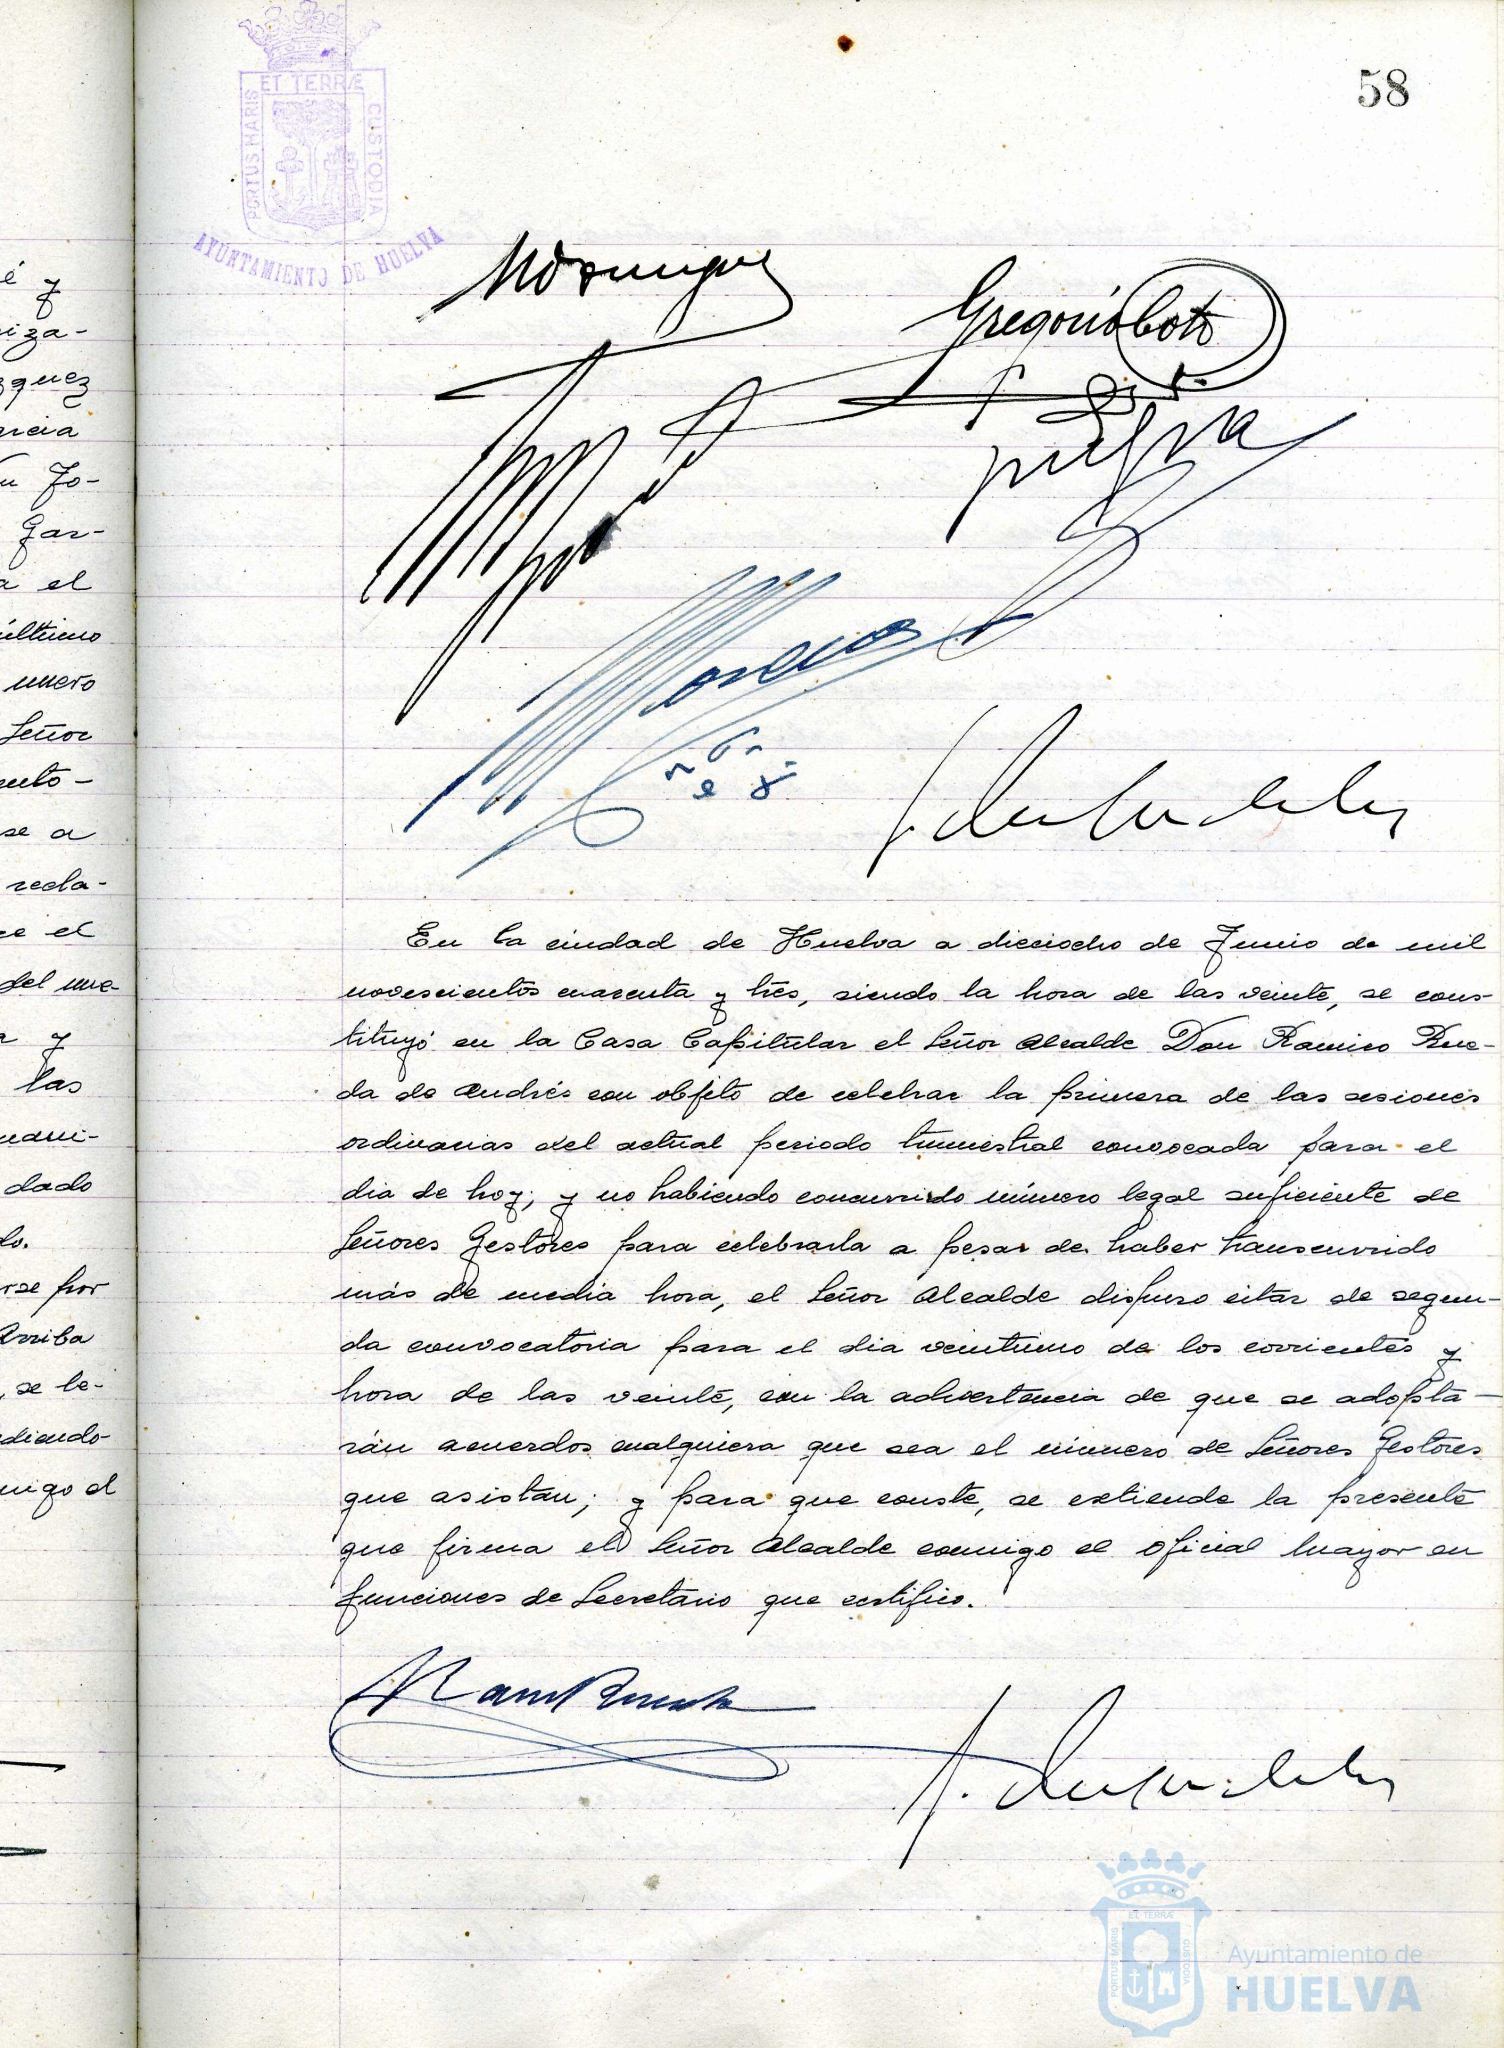 ET TERRÆ
PORTUS MARIS
CUSTODIA
AYUNTAMIENTO DE HUELVA
58
é y
riza-
zquez
arcia
n Jo-
Gar-
a el
último
unero
Señor
ento-
se a
recla-
ce el
del me-
a y
las
mani-
dado
do.
rse por
Arriba
, se le-
diendo-
migo el
Gregorio Coto
En la ciudad de Huelva a dieciocho de Junio de mil
novescientos cuarenta y trés, siendo la hora de las veinte, se cons-
tituyó en la Casa Capitular el Señor Alcalde Don Ramiro Rue-
da de Andrés con objeto de celebrar la primera de las sesiones
ordinarias del actual periodo trimestral convocada para el
dia de hoy; y no habiendo concurrido número legal suficiente de
Señores Gestores para celebrarla a pesar de haber transcurrido
más de media hora, el Señor Alcalde dispuso citar de segun-
da convocatoria para el dia veintiuno de los corrientes y
hora de las veinte, con la advertencia de que se adopta-
rán acuerdos cualquiera que sea el número de Señores Gestores
que asistan; y para que conste, se extiende la presente
que firma el Señor Alcalde conmigo el Oficial Mayor en
funciones de Secretario que certifico.
Ram Rueda
ET TERRÆ
PORTUS MARIS
CUSTODIA
Ayuntamiento de
HUELVA